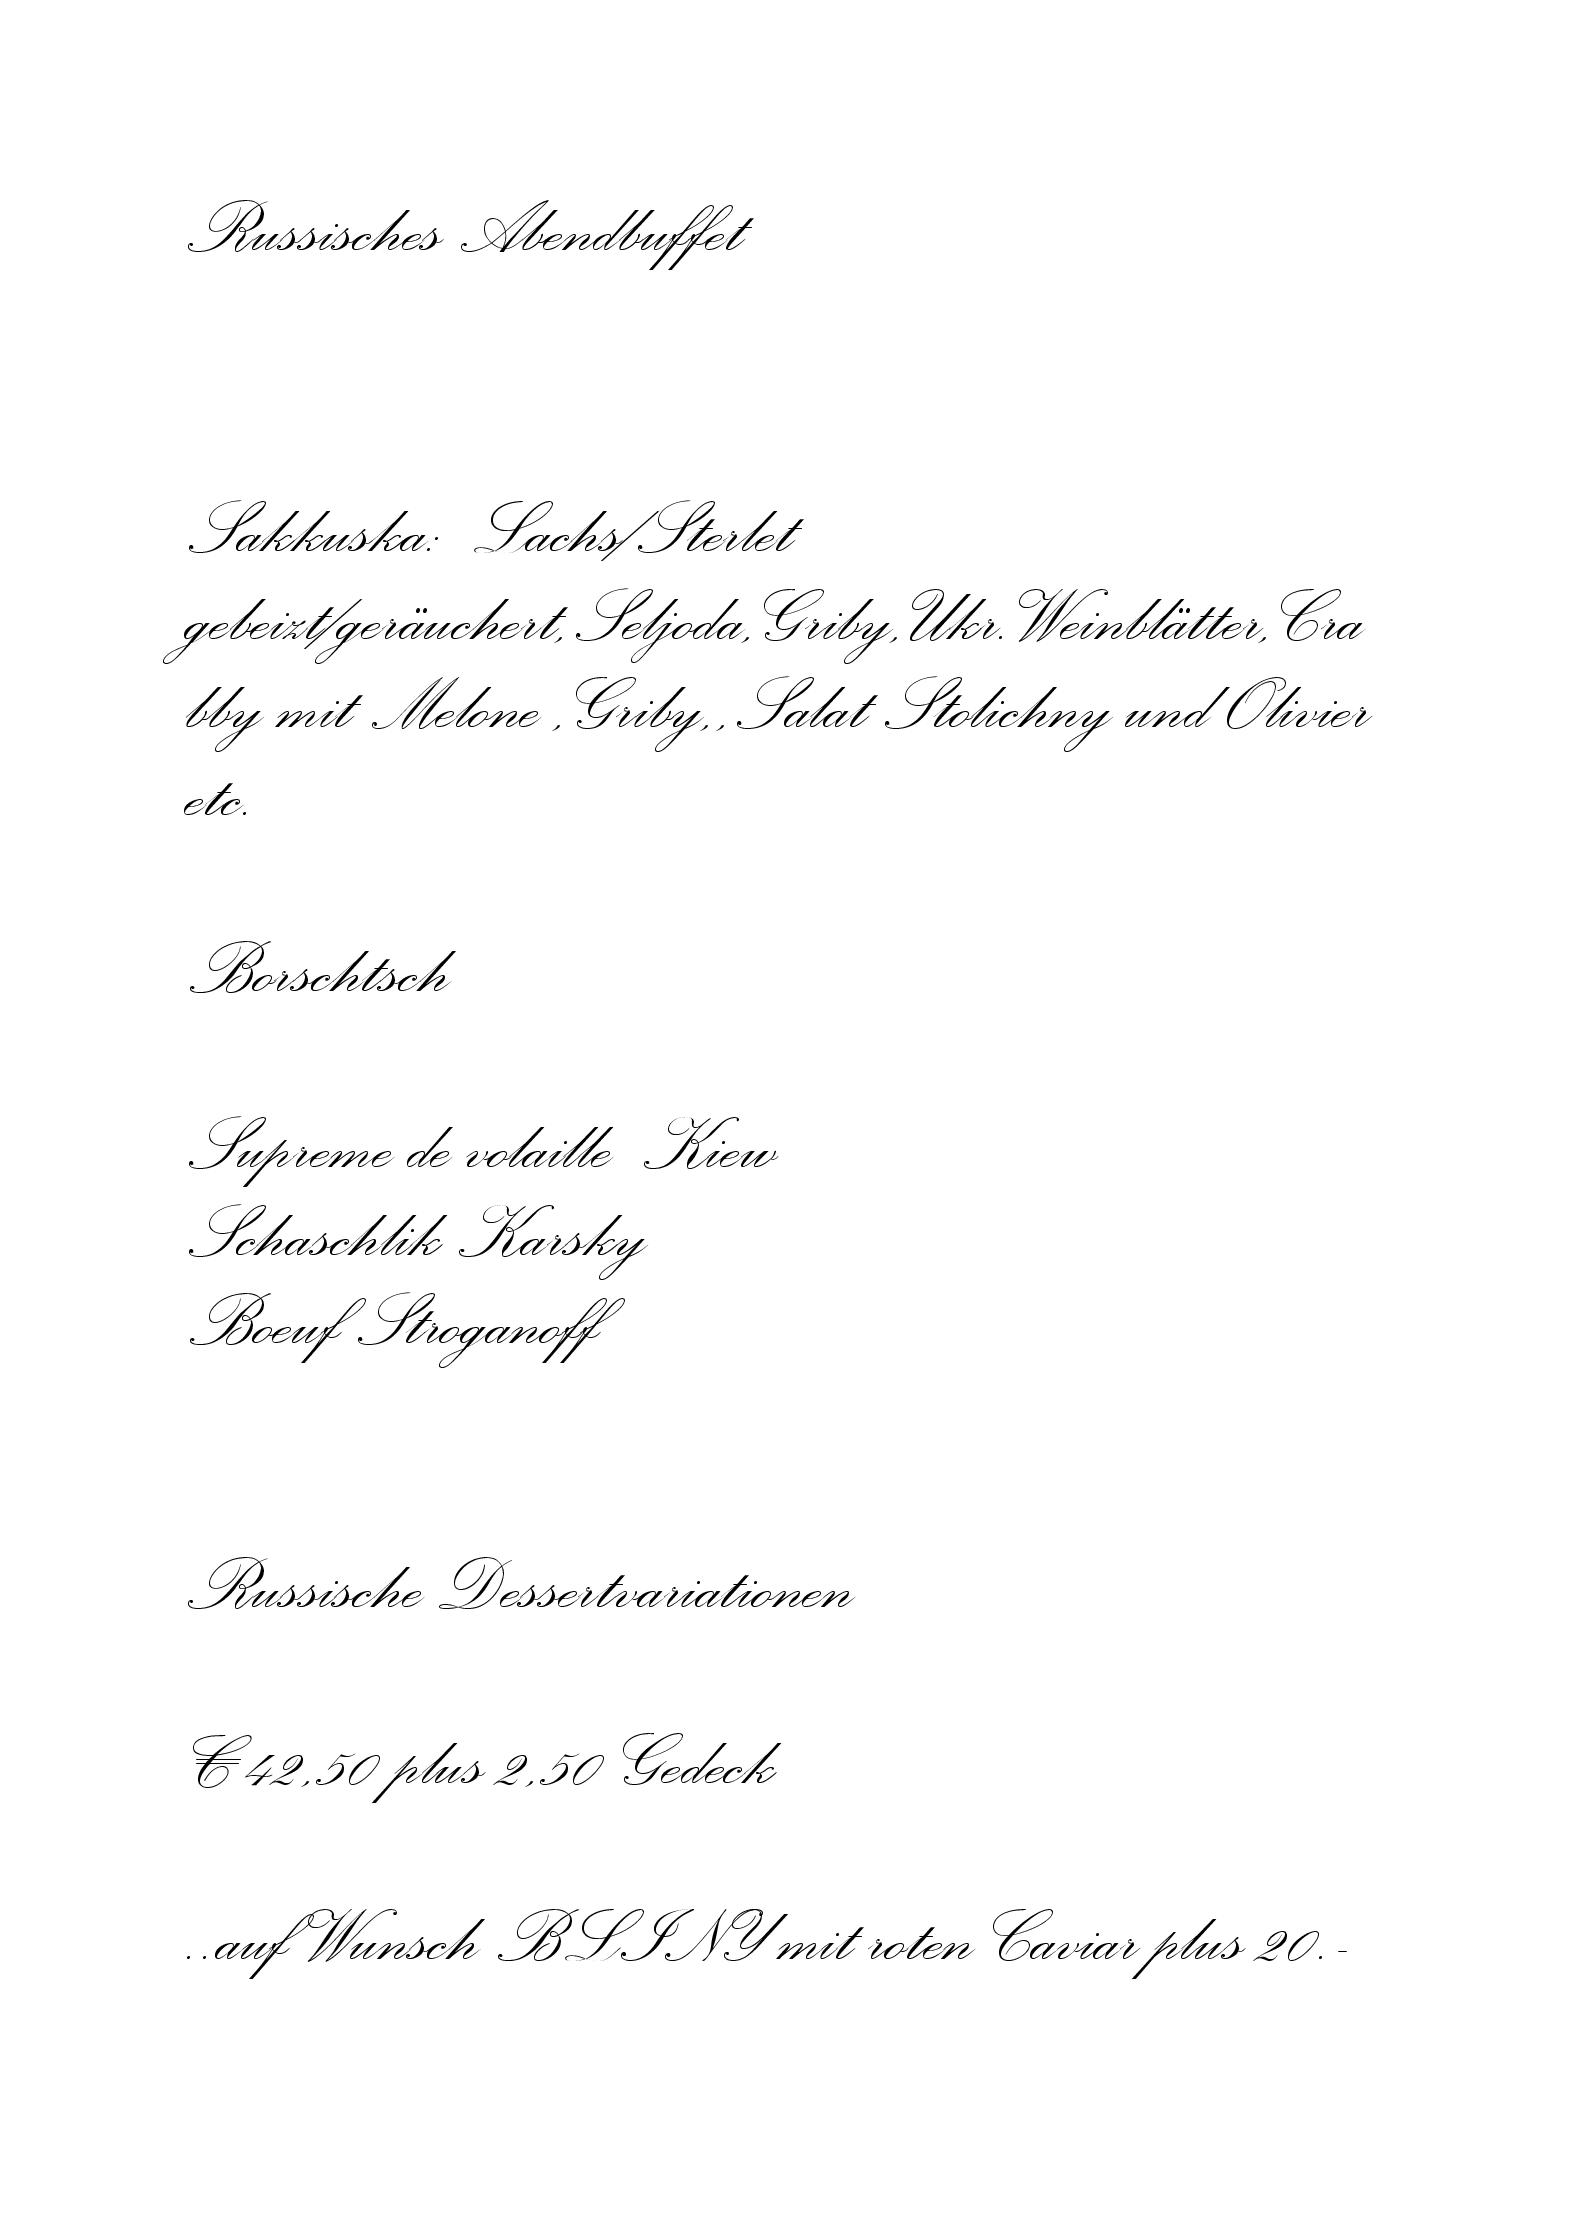 Russisches Abendbuffet
Sakkuska: Lachs/Sterlet
gebeizt/geräuchert, Seljoda, Griby, Ukr. Weinblätter, Cra
bby mit Melone , Griby, , Salat Stolichny und Olivier
etc.
Borschtsch
Supreme de volaille Kiew
Schaschlik Karsky
Boeuf Stroganoff
Russische Dessertvariationen
€ 42,50 plus 2,50 Gedeck
..auf Wunsch BLINY mit roten Caviar plus 20.-